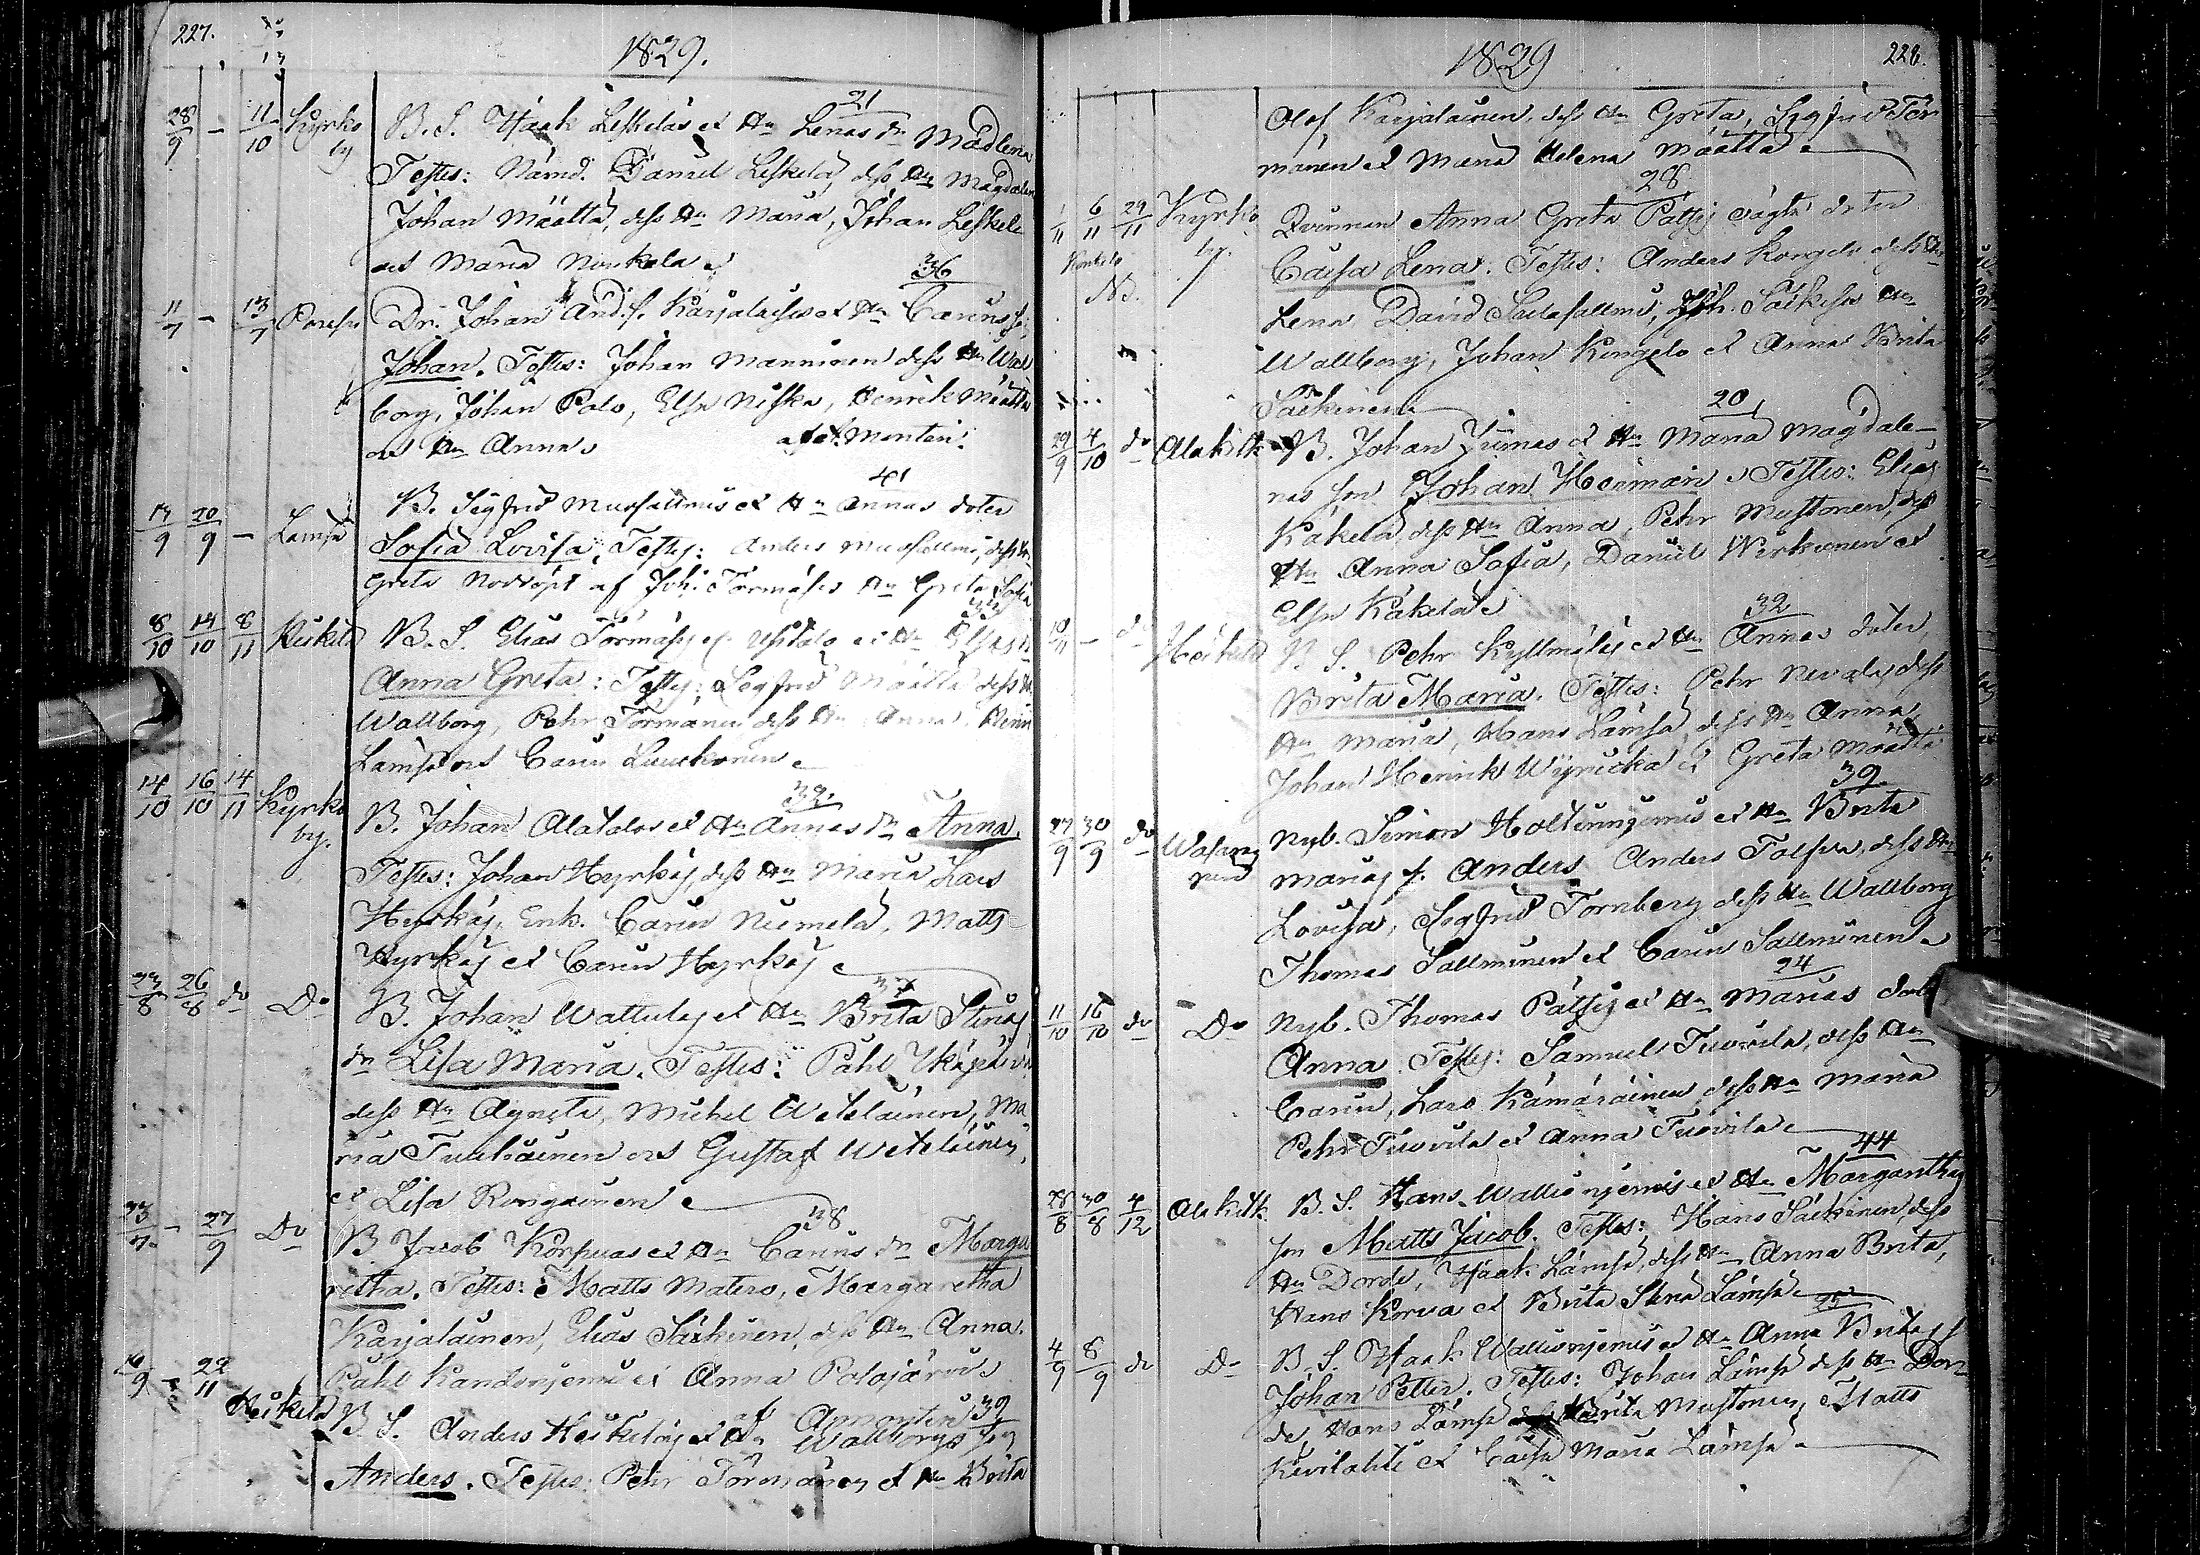 227.
1829.
28/9 - 11/10 Kyrko by
21
B. S. Isaak Leskeläs et Hu Lenas dr Madlena
Testes: Nämd. Daniel Leskelä, dess Hu Magdalen
Johan Määttä, dess Hu Maria, Johan Leskelä
och Maria Noukala
36
11/7 - 13/7
Dr. Johan And.s. Karjalaises et Hu Carins son
Johan. Testes: Johan Manninen dess Hu Wal
borg, Johan Palo, Elsa Niska, Henrik Määttä
och Hu Anna
af A. Montin
41
14/9 20/9 - Lämsä
B. Sigfrid Mursallmis et Hu Annas doter
Sofia Lovisa, Testes: Anders Mursallmi, dess Hu
Greta Nöddöpt af Joh. Törmäses Hu Greta Sofia
33
8/10 14/10 8/11 Heikilä
B. S. Elias Törmäses et Hu Elsas dr
Anna Greta: Testes: Segfrid Määttä dess Hu
Wallborg, Pehr Törmänen dess Hu Anna, Henrik
Lämsä och Carin Luukonen
32
14/10 16/10 14/11 Kyrko by.
B. Johan Alatalos et Hu Annas dr Anna.
Testes: Johan Hyrkäs, dess Hu Maria Lars
Hyrkäs, Enk. Carin Niemelä, Matts
Hyrkäs et Carin Hyrkäs
37
23/8 26/8 do Do
B. Johan Wattulas et Hu Brita Stinas
dr Lisa Maria. Testes: Påhl
dess Hu Agneta, Michel Wetelainen, Ma
ria Tuuliainen och Gustaf Wetelainen,
et Lisa Rongainen
38
23/7 - 27/9 Do
B Jacob Korpuas et Hu Carins dr Marga
retha. Testes: Matts Matero, Margaretha
Karjalainen, Elias Säkkinen, dess Hu Anna.
Påhl Kandonjemi et Anna Palojärvi
22/11 Heikilä
af A Montin 39
B. S. Anders Heikeläs et Hu Wallborgs son
Anders. Testes: Pehr Törmänen et Hu Brita
1829
228.
Olof Karjalainen, dess Hu Greta, Segfrid Tör
mänen et Maria Helena Määttä
28
1/11 6/11 29/11 Kyrko by.
Qvinnan Anna Greta Pätsis oägta doter
Caisa Lena: Testes: Anders Kongelo dess Hu
Lena David Sactasallmi, Joh. Säkkises Hu
Wallborg, Johan Kongelo et Anna Brita
Säkkinen
20
29/9 4/10 do Alakitk
B. Johan Jurmus et Hu Maria Magdale-
nas son Johan Herman. Testes: Elias
Käkelä, dess Hu Anna, Pehr Mustonen, dess
Hu Anna Sofia, Daniel Wirkunen et
Elsa Käkelä
32
Heikilä
B. S. Pehr Kyllmäläs et Hu Annas doter,
Brita Maria. Testes: Pehr Nevala, dess
Hu Maria, Hans Lämsä, dess Hu Anna,
Johan Henrik Wyrickä et Greta Määttä
39
27/9 30/9 do
Nyb. Simon Holtinngemis et Hu Brita
Marias s. Anders Anders Tolfva, dess Hu
Lovisa, Segfrid Tornberg dess Hu Wallborg
Thomas Sallminen et Carin Sallminen
24
11/10 16/10 do Do
Nyb. Thomas Pätsis et Hu Marias doter
Anna. Testes: Samuel Tuovila, dess Hu
Carin, Lars Kämäräinen, dess Hu Maria
Pehr Tuovila et Anna Tuovila
44
28/8 30/8 4/12 Alakitk.
B. S. Hans Wallionjemis et Hu Margarethas
son Matts Jacob. Testes: Hans Säkkinen, dess
Hu Dorde, Isaak Lämsä, dess Hu Anna Brita,
Hans Korva et Brita Stina Lämsä
4/9 8/9 do Do
B. S. Isaak Wallionjemis et Hu Anna Britas s
Johan Petter. Testes: Johan Lämsä dess Hu Dor-
de, Hans Lämsä Brita Mustonen, Matts
Kevilahti et Caisa Maria Lämsä